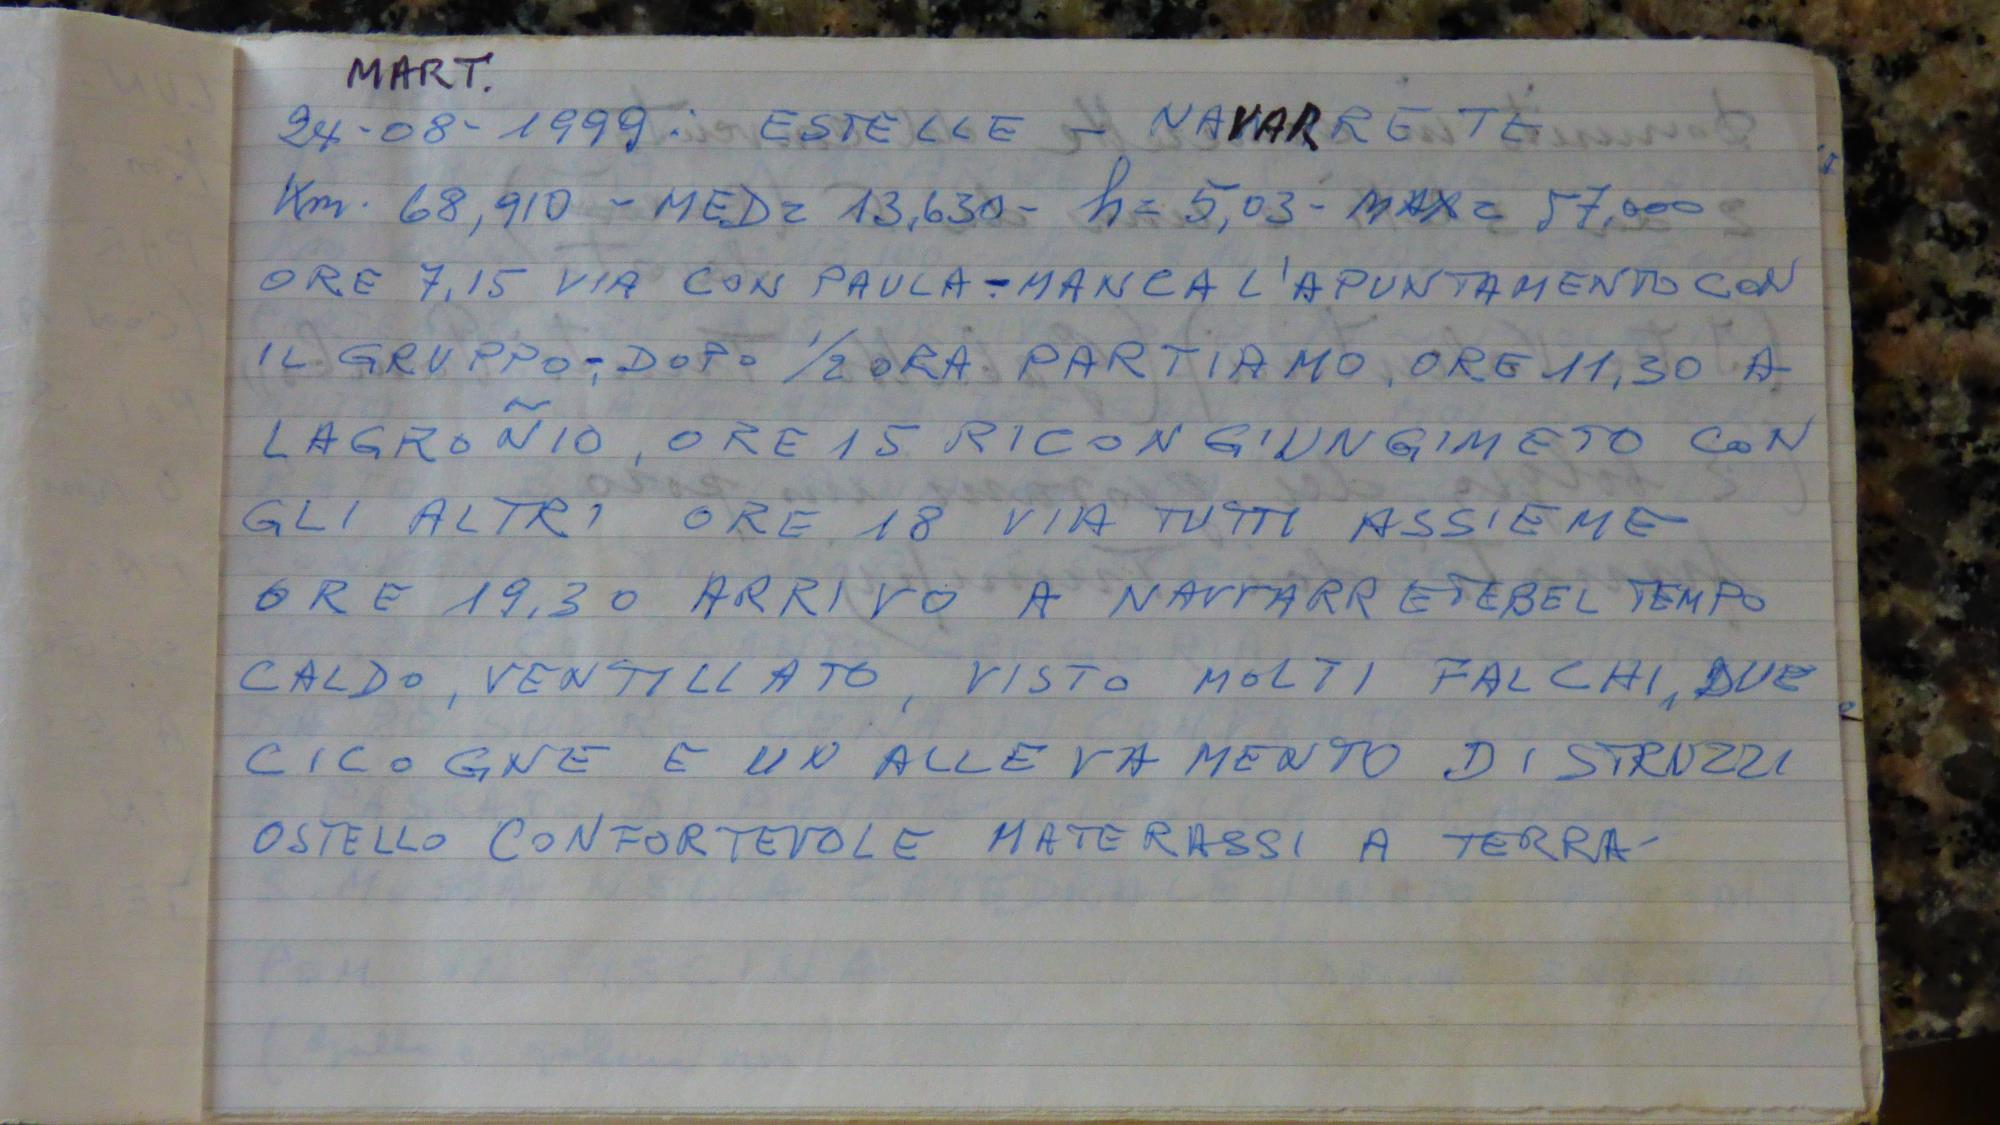 MART.
24-08-1999: ESTELLE - NAVARRETE
Km. 68,910 - MED= 13,630 - h= 5,03 - MAX= 57,000
ORE 7,15 VIA CON PAULA - MANCA L'APUNTAMENTO CON
IL GRUPPO-; DOPO 1/2 ORA PARTIAMO, ORE 11,30 A
LAGROÑIO, ORE 15 RICONGIUNGIMETO CON
GLI ALTRI ORE 18 VIA TUTTI ASSIEME
ORE 19,30 ARRIVO A NAVVARRETE BEL TEMPO
CALDO, VENTILLATO, VISTO MOLTI FALCHI, DUE
CICOGNE E UN ALLEVAMENTO DI STRUZZI
OSTELLO CONFORTEVOLE MATERASSI A TERRA-